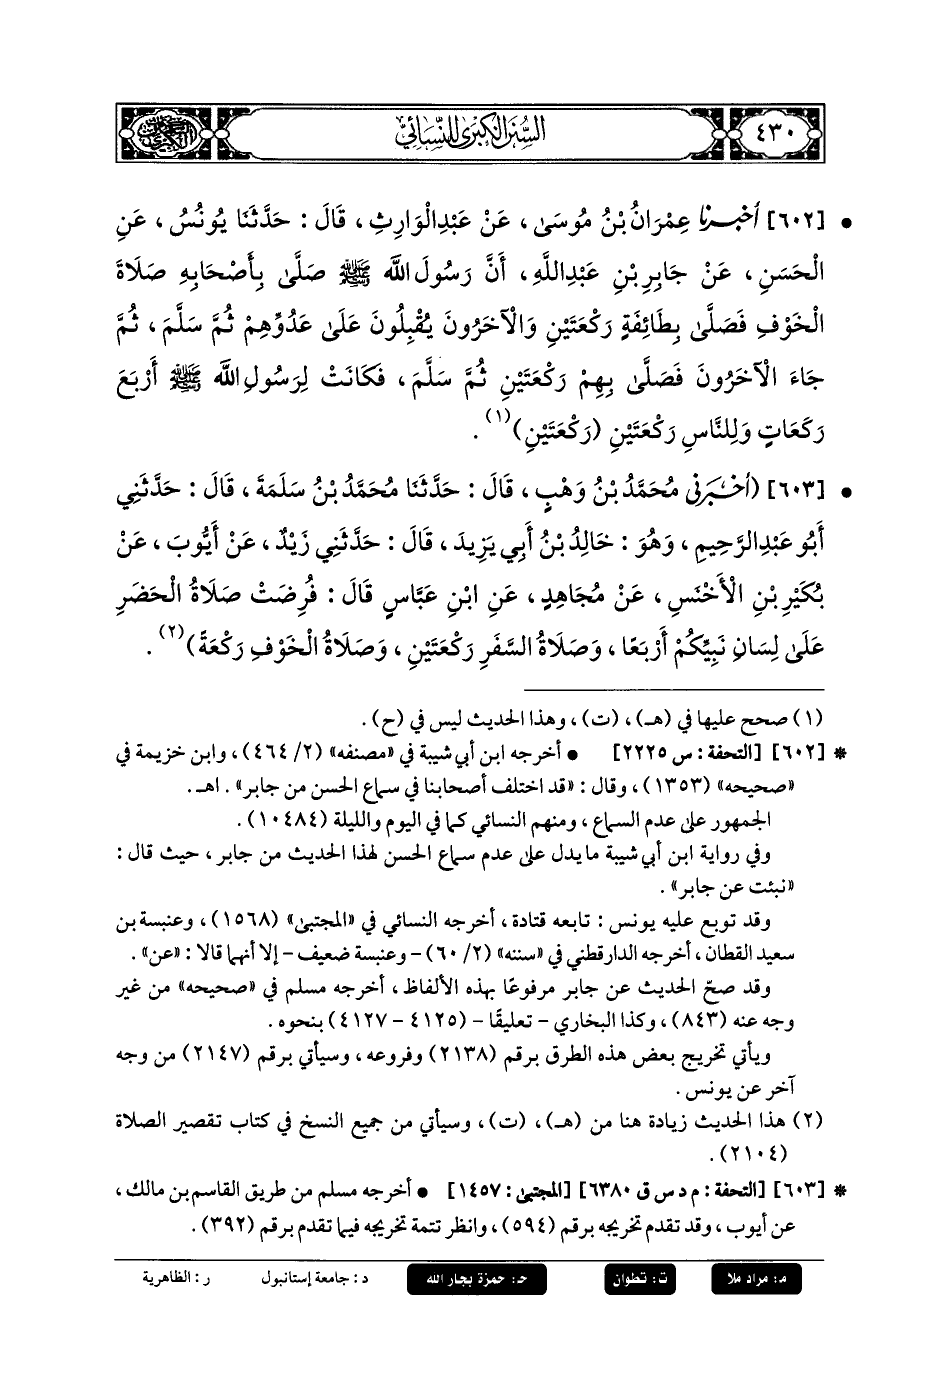 ٤٣٠
السنن الكبرى للنسائي
• [٦٠٢] أخبرنا عِمْرَانُ بْنُ مُوسَىٰ ، عَنْ عَبْدِالْوَارِثِ ، قَالَ : حَدَّثَنَا يُونُسُ ، عَنِ
الْحَسَنِ ، عَنْ جَابِرِ بْنِ عَبْدِاللَّهِ ، أَنَّ رَسُولَ اللَّه ﷺ صَلَّىٰ بِأَصْحَابِهِ صَلَاةَ
الْخَوْفِ فَصَلَّىٰ بِطَائِفَةٍ رَكْعَتَيْنِ وَالْآخَرُونَ يُقْبِلُونَ عَلَىٰ عَدُوِّهِمْ ثُمَّ سَلَّمَ ، ثُمَّ
جَاءَ الْآخَرُونَ فَصَلَّىٰ بِهِمْ رَكْعَتَيْنِ ثُمَّ سَلَّمَ ، فَكَانَتْ لِرَسُولِ اللَّه ﷺ أَرْبَعَ
رَكَعَاتٍ وَلِلنَّاسِ رَكْعَتَيْنِ (رَكْعَتَيْنِ) (١) .
• [٦٠٣] (أخبرني مُحَمَّدُ بْنُ وَهْبٍ ، قَالَ : حَدَّثَنَا مُحَمَّدُ بْنُ سَلَمَةَ ، قَالَ : حَدَّثَنِي
أَبُو عَبْدِالرَّحِيمِ ، وَهُوَ : خَالِدُ بْنُ أَبِي يَزِيدَ ، قَالَ : حَدَّثَنِي زَيْدٌ ، عَنْ أَيُّوبَ ، عَنْ
بُكَيْرِ بْنِ الْأَخْنَسِ ، عَنْ مُجَاهِدٍ ، عَنِ ابْنِ عَبَّاسٍ قَالَ : فُرِضَتْ صَلَاةُ الْحَضَرِ
عَلَىٰ لِسَانِ نَبِيِّكُمْ أَرْبَعًا ، وَصَلَاةُ السَّفَرِ رَكْعَتَيْنِ ، وَصَلَاةُ الْخَوْفِ رَكْعَةً) (٢) .
(١) صحح عليها في (هـ) ، (ت) ، وهذا الحديث ليس في (ح) .
* [٦٠٢] [التحفة : س ٢٢٢٥] • أخرجه ابن أبي شيبة في «مصنفه» (٢/ ٤٦٤) ، وابن خزيمة في
«صحيحه» (١٣٥٣) ، وقال : «قد اختلف أصحابنا في سماع الحسن من جابر» . اهـ .
الجمهور على عدم السماع ، ومنهم النسائي كما في اليوم والليلة (١٠٤٨٤) .
وفي رواية ابن أبي شيبة ما يدل على عدم سماع الحسن لهذا الحديث من جابر ، حيث قال :
«نبئت عن جابر» .
وقد توبع عليه يونس : تابعه قتادة ، أخرجه النسائي في «المجتبى» (١٥٦٨) ، وعنبسة بن
سعيد القطان ، أخرجه الدارقطني في «سننه» (٢/ ٦٠) - وعنبسة ضعيف - إلا أنهما قالا : «عن» .
وقد صحّ الحديث عن جابر مرفوعًا بهذه الألفاظ ، أخرجه مسلم في «صحيحه» من غير
وجه عنه (٨٤٣) ، وكذا البخاري - تعليقًا - (٤١٢٥ - ٤١٢٧) بنحوه .
ويأتي تخريج بعض هذه الطرق برقم (٢١٣٨) وفروعه ، وسيأتي برقم (٢١٤٧) من وجه
آخر عن يونس .
(٢) هذا الحديث زيادة هنا من (هـ) ، (ت) ، وسيأتي من جميع النسخ في كتاب تقصير الصلاة
(٢١٠٤) .
* [٦٠٣] [التحفة : م د س ق ٦٣٨٠] [المجتبى : ١٤٥٧] • أخرجه مسلم من طريق القاسم بن مالك ،
عن أيوب ، وقد تقدم تخريجه برقم (٥٩٤) ، وانظر تتمة تخريجه فيما تقدم برقم (٣٩٢) .
م: مراد ملا ت: تطوان حـ: حمزة بجار الله د: جامعة إستانبول ر: الظاهرية